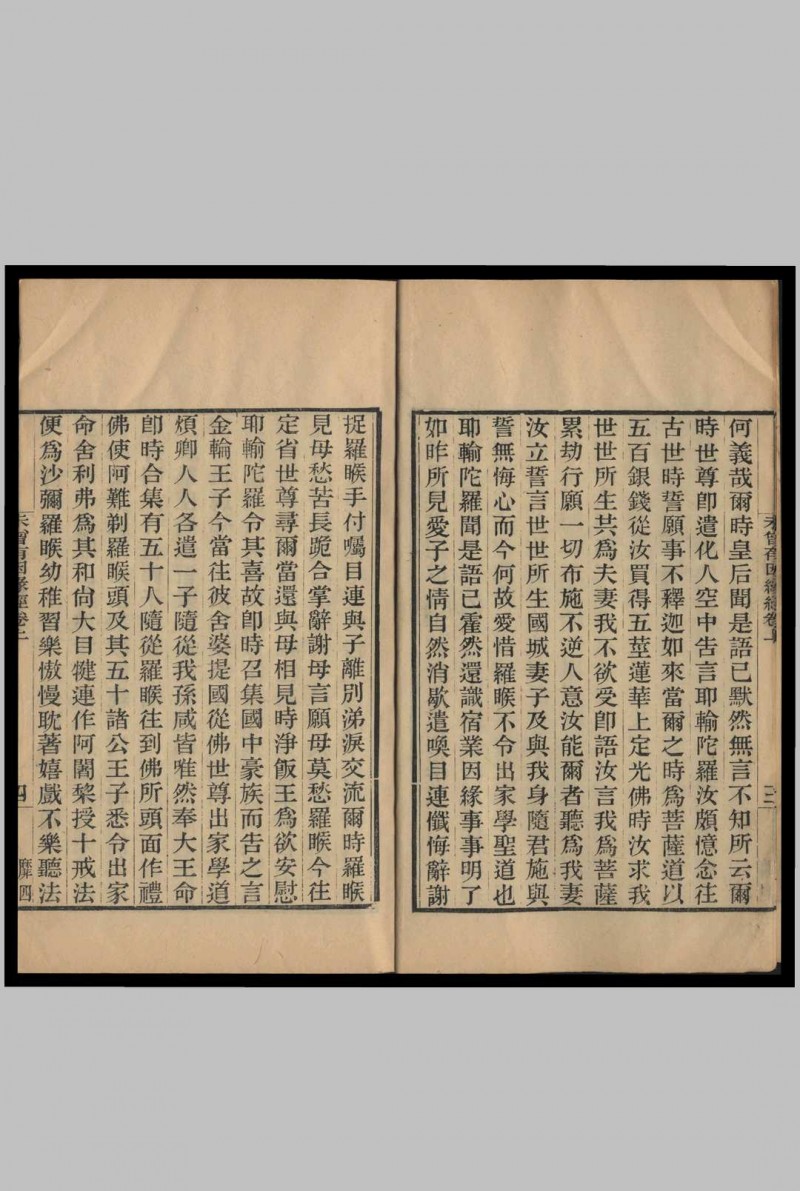 未曾有因緣經卷上
三
何義哉爾時皇后聞是語已默然無言不知所云爾
時世尊卽遣化人空中告言耶輸陀羅汝頗憶念往
古世時誓願事不釋迦如來當爾之時爲菩薩道以
五百銀錢從汝買得五莖蓮華上定光佛時汝求我
世世所生共爲夫妻我不欲受卽語汝言我爲菩薩
累劫行願一切布施不逆人意汝能爾者聽爲我妻
汝立誓言世世所生國城妻子及與我身隨君施與
誓無悔心而今何故愛惜羅睺不令出家學聖道也
耶輸陀羅聞是語已霍然還識宿業因緣事事明了
如昨所見愛子之情自然消歇遣喚目連懺悔辭謝
捉羅睺手付囑目連與子離別涕淚交流爾時羅睺
見母愁苦長跪合掌辭謝母言願母莫愁羅睺今往
定省世尊尋爾當還與母相見時淨飯王爲欲安慰
耶輸陀羅令其喜故卽時召集國中豪族而告之言
金輪王子今當往彼舍婆提國從佛世尊出家學道
煩卿人人各遣一子隨從我孫咸皆唯然奉大王命
卽時合集有五十八隨從羅睺往到佛所頭面作禮
佛使阿難剃羅睺頭及其五十諸公王子悉令出家
命舍利弗爲其和尙大目犍連作阿闍棃授十戒法
便爲沙彌羅睺幼稚習樂憿慢耽著嬉戲不樂聽法
未曾有因緣經卷上
四
靡四